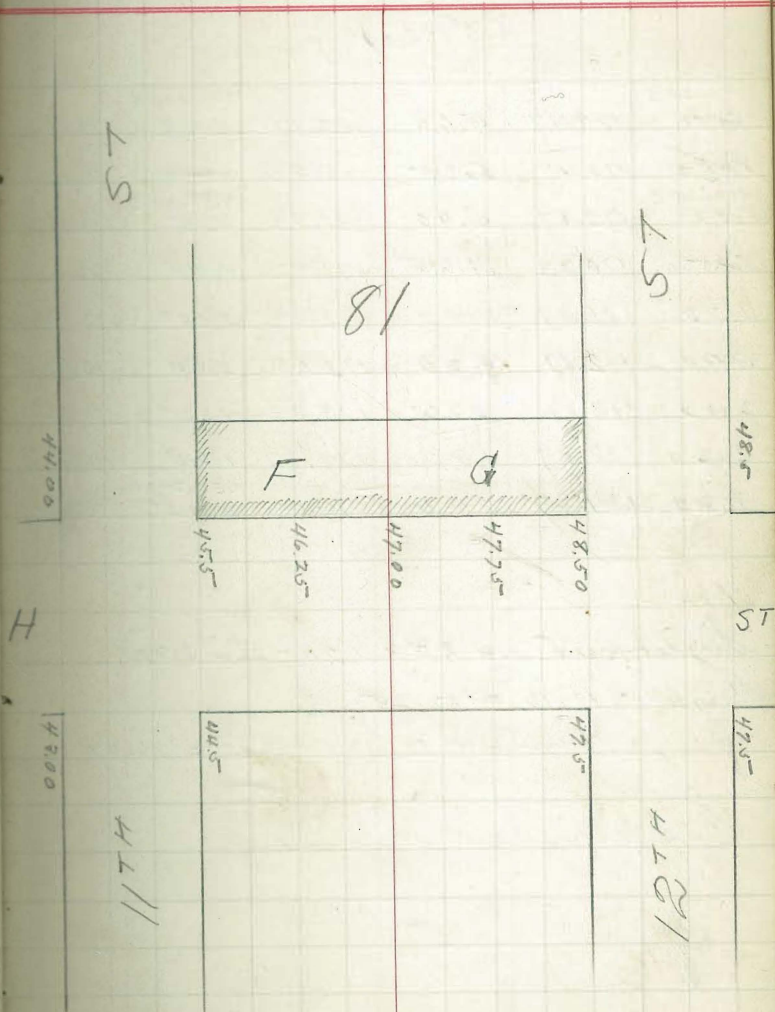 ST
ST
81
44.00
48.5
F
G
45.5
46.25
47.00
47.75
48.50
H
ST
43.00
44.5
47.5
47.5
11TH
12TH